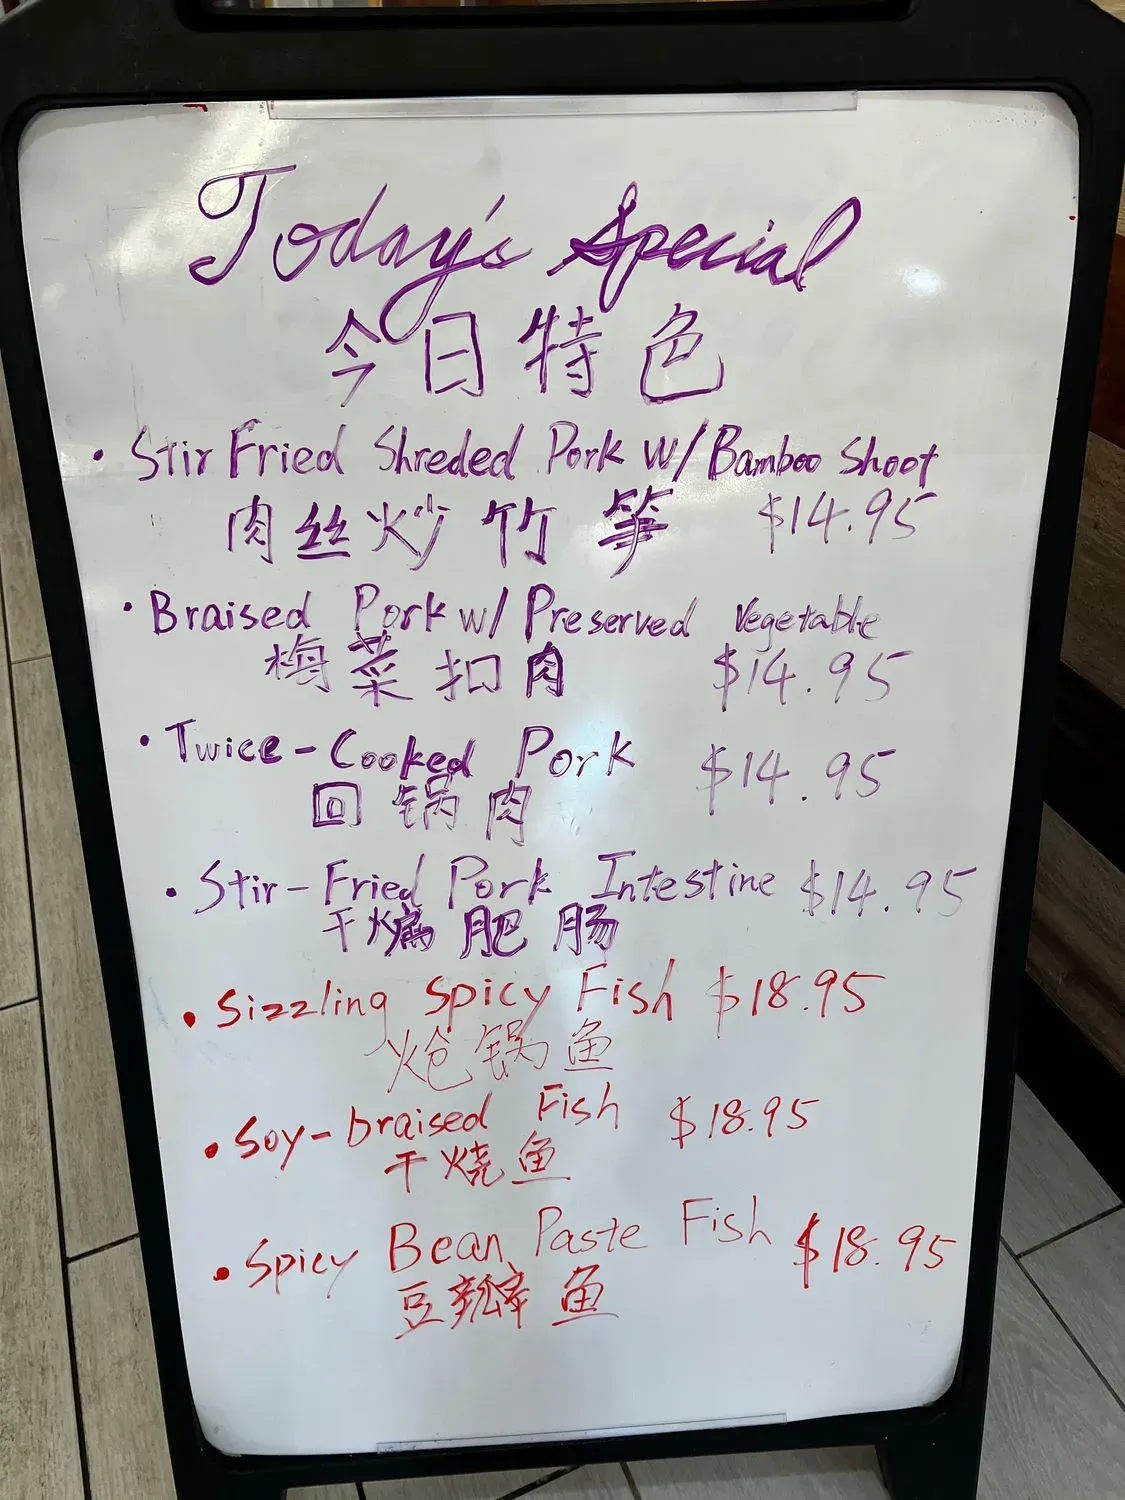 Today's Special
今日特色
· Stir Fried Shreded Pork w/Bamboo Shoot
肉丝炒竹笋 $14.95
· Braised Pork w/ Preserved Vegetable
梅菜扣肉 $14.95
· Twice-Cooked Pork $14.95
回锅肉
· Stir-Fried Pork Intestine $14.95
干煸肥肠
· Sizzling Spicy Fish $18.95
炝锅鱼
· Soy-braised Fish $18.95
干烧鱼
· Spicy Bean Paste Fish $18.95
豆瓣鱼